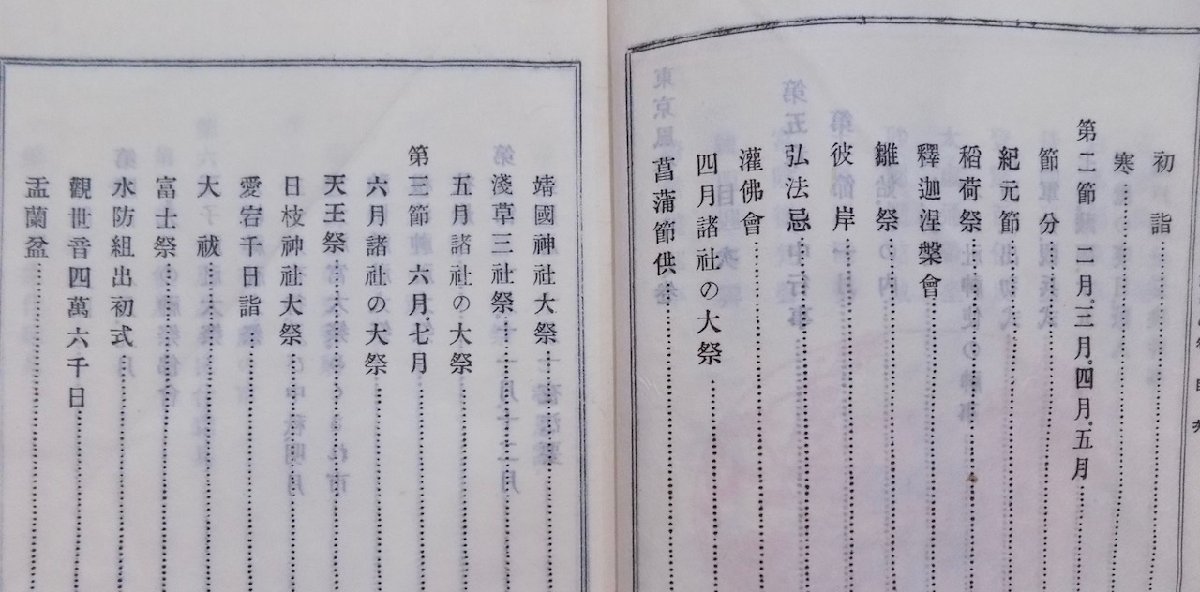 初詣
寒
第二節 二月。三月。四月。五月
節分
紀元節
稻荷祭
釋迦涅槃會
雛祭
彼岸
弘法忌
灌佛會
四月諸社の大祭
菖蒲節供
靖國神社大祭
淺草三社祭
五月諸社の大祭
第三節 六月。七月
六月諸社の大祭
天王祭
日枝神社大祭
愛宕千日詣
大祓
富士祭
水防組出初式
觀世音四萬六千日
盂蘭盆